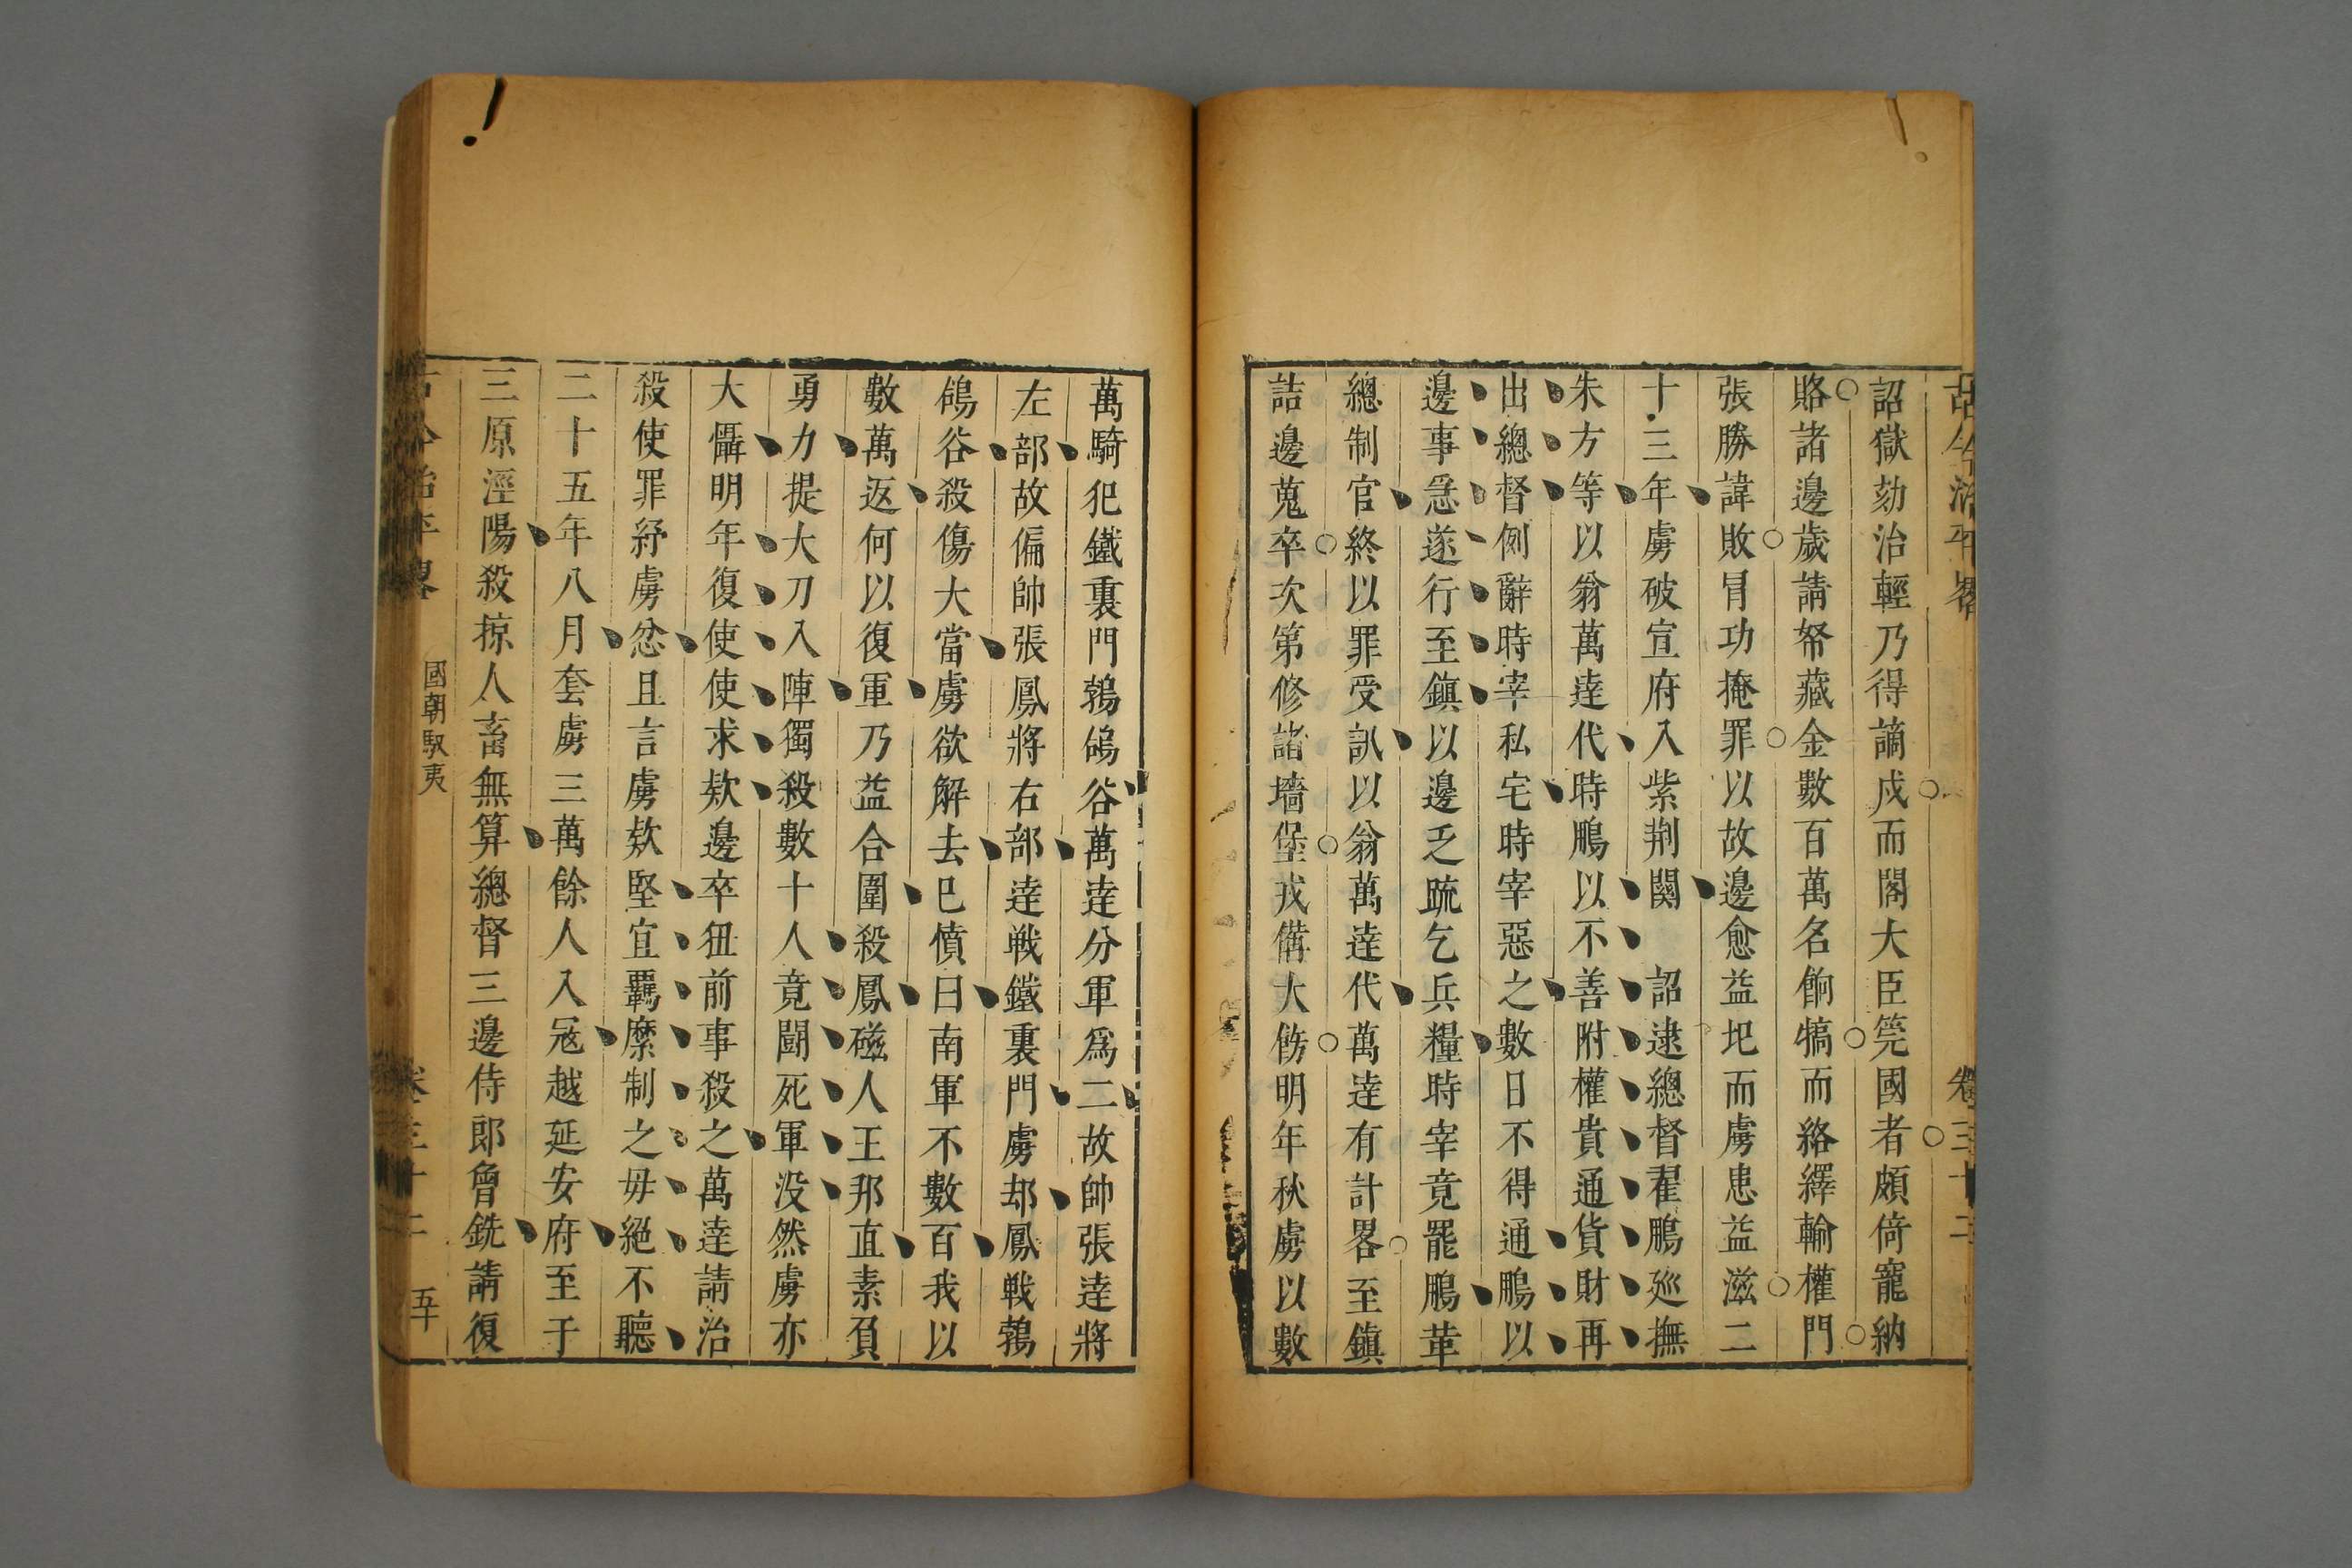 古今治平畧 卷三十二
詔獄劾治輕乃得謫戍而閣大臣筦國者頗倚寵納
賂諸邊歲請帑藏金數百萬名餉犒而絡繹輸權門
張勝諱敗冐功掩罪以故邊愈益圯而虜患益滋二
十三年虜破宣府入紫荆關 詔逮總督翟鵬廵撫
朱方等以翁萬逹代時鵬以不善附權貴通貨財再
出總督例辭時宰私宅時宰惡之數日不得通鵬以
邊事急遂行至鎮以邊乏䟽乞兵糧時宰竟罷鵬革
總制官終以罪受訊以翁萬逹代萬逹有計畧至鎮
詰邊蒐卒次第修諸墻堡戎備大飭明年秋虜以數
萬騎犯鐵裏門鵓鴿谷萬逹分軍爲二故帥張逹將
左部故偏帥張鳳將右部逹戰鐵裏門虜却鳳戰鵓
鴿谷殺傷大當虜欲解去已憤曰南軍不數百我以
數萬返何以復軍乃益合圍殺鳳磁人王邦直素負
勇力提大刀入陣獨殺數十人竟鬬死軍没然虜亦
大懾明年復使使求欵邊卒狃前事殺之萬逹請治
殺使罪紓虜忿且言虜欵堅宜覊縻制之毋絕不聽
二十五年八月套虜三萬餘人入冦越延安府至于
三原涇陽殺掠人畜無算總督三邊侍郎曾銑請復
古今治平畧 國朝馭夷 卷三十二 五十